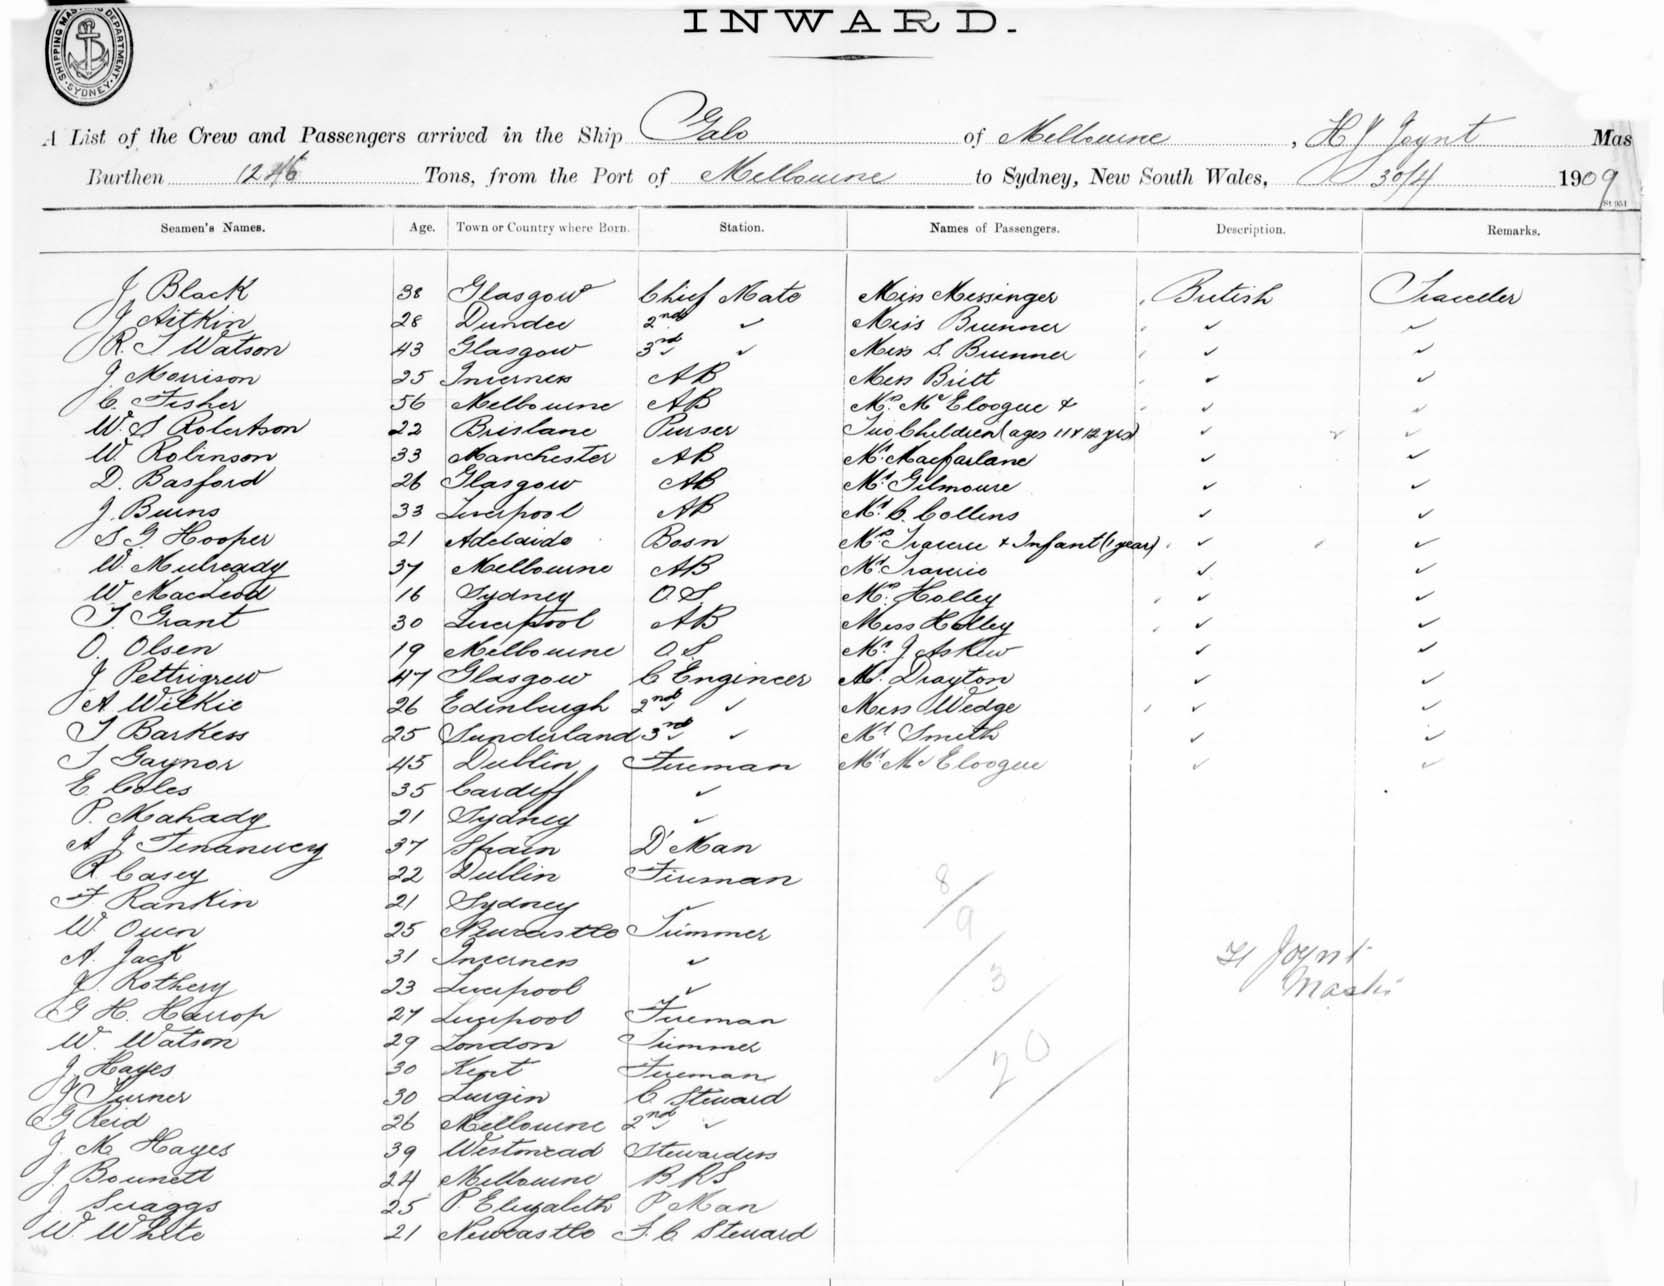 INWARD.
SHIPPING MASTERS DEPARTMENT SYDNEY
A List of the Crew and Passengers arrived in the Ship Galo of Melbourne, H J Joynt Mas
Burthen 1246 Tons, from the Port of Melbourne to Sydney, New South Wales, 30/4 1909
St 951
Seamen's Names. Age. Town or Country where Born. Station. Names of Passengers. Description. Remarks.
J Black 38 Glasgow Chief Mate Miss Messinger British Traveller
J Aitkin 28 Dundee 2nd ✓ Miss Brunner ✓ ✓
R. T Watson 43 Glasgow 3rd ✓ Miss S. Brunner ✓ ✓
J Morrison 25 Inverness AB Miss Britt ✓ ✓
C. Fisher 56 Melbourne AB Mrs McElogue & ✓ ✓
W. S Robertson 22 Brisbane Purser Two Children (ages 11 & 12 yrs) ✓ ✓
W. Robinson 33 Manchester AB Mr Macfarlane ✓ ✓
D. Basford 26 Glasgow AB Mr Gilmoure ✓ ✓
J. Burns 33 Liverpool AB Mr C. Collins ✓ ✓
S G Hooper 21 Adelaide Bosn Mrs Traverse & Infant (1 year) ✓ ✓
W Mulready 37 Melbourne AB Mr ✓ ✓
W MacLeod 16 Sydney O.S. Mrs Holley ✓ ✓
T. Grant 30 Liverpool AB Miss Holley ✓ ✓
O. Olsen 19 Melbourne O.S. Mr J Askew ✓ ✓
J Pettigrew 47 Glasgow C Engineer Mr Drayton ✓ ✓
A Wilkie 26 Edinburgh 2nd ✓ Miss Wedge ✓ ✓
T Barkess 25 Sunderland 3rd ✓ Mr Smith ✓ ✓
T Gaynor 45 Dublin Fireman Mr McElogue ✓ ✓
E. Coles 35 Cardiff ✓
P. Mahady 21 Sydney ✓
A J 37 Spain D'Man
R Casey 22 Dublin Fireman
F Rankin 21 Sydney ✓
W. Owen 25 Newcastle Trimmer
A. Jack 31 Inverness ✓
J. Rothery 23 Liverpool ✓
G H. Harrop 27 Liverpool Fireman
W. Watson 29 London Trimmer
J Hayes 30 Kent Fireman
J Turner 30 Lurgin C. Steward
G Reid 26 Melbourne 2nd ✓
J. M Hayes 39 Westmead Stewardess
J Bounett 24 Melbourne BRS
J. Scraggs 25 P. Elizabeth P Man
W. White 21 Newcastle F. C Steward
8/
9/
3/
20/
H Joynt
Master